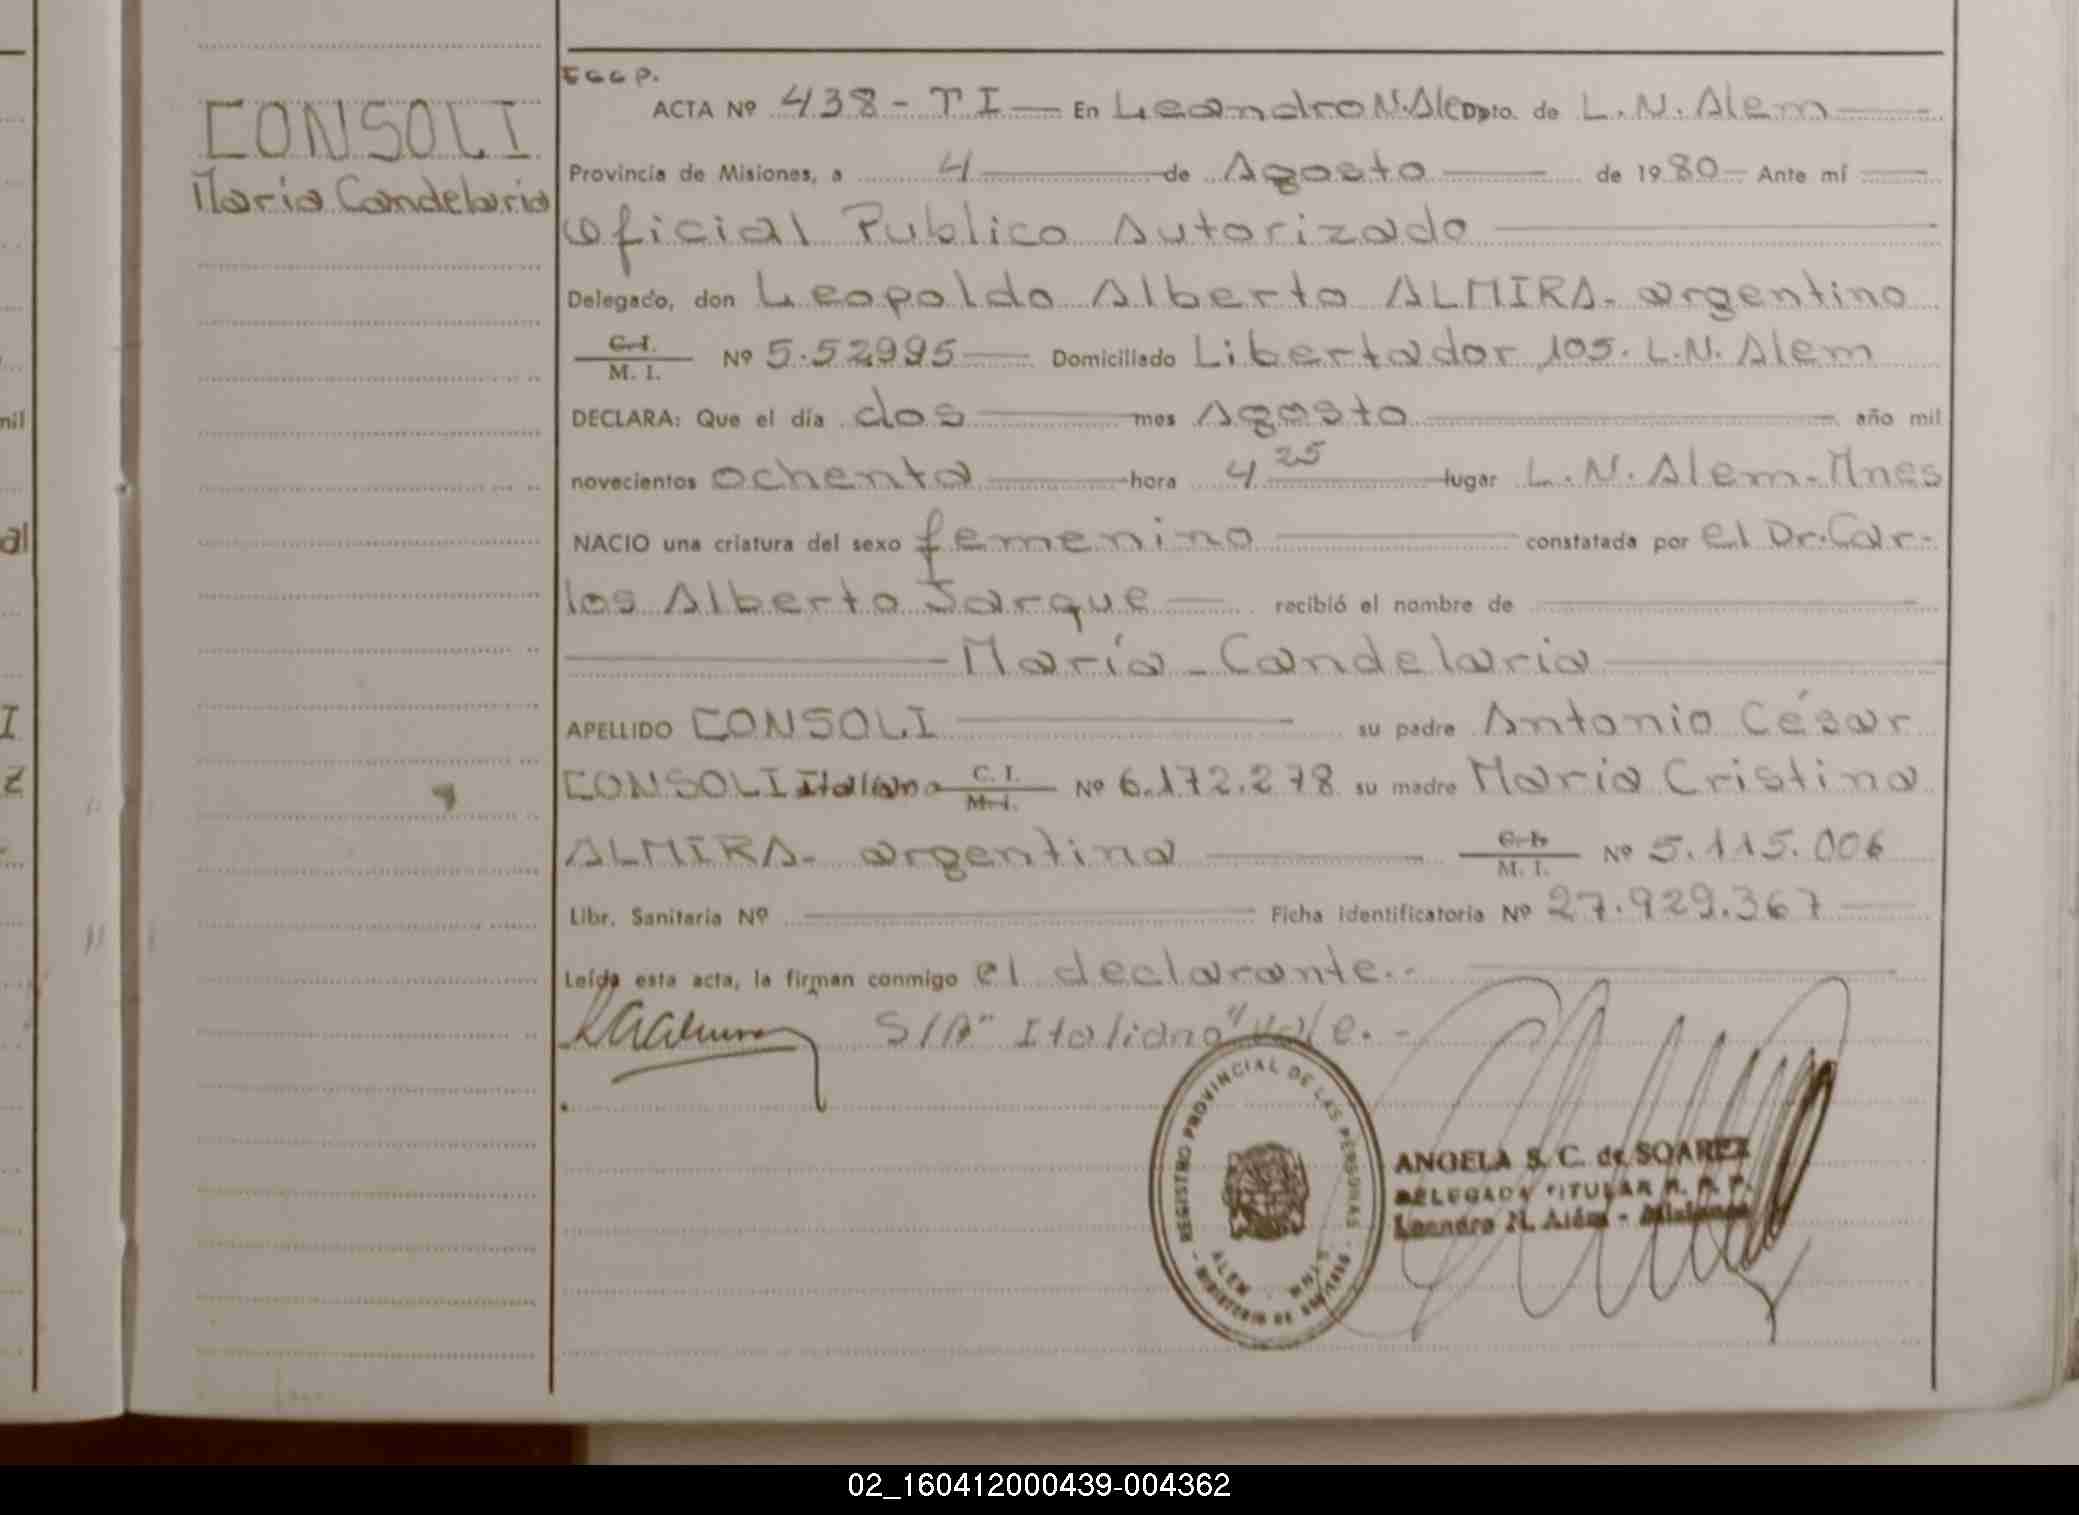 CONSOLI
María Candelaria
ACTA Nº 438 - T I — En Leandro N. Alem Dpto. de L. N. Alem —
Provincia de Misiones, a 4 — de Agosto — de 1980 — Ante mí —
Oficial Publico Autorizado —
Delegado, don Leopoldo Alberto ALMIRA. argentino
C. I. / M. I. Nº 5.52995 — Domiciliado Libertador 105. L.N. Alem
DECLARA: Que el día dos — mes Agosto — año mil
novecientos ochenta — hora 4 25 — lugar L. N. Alem - Mnes
NACIO una criatura del sexo femenino — constatada por el Dr. Car-
los Alberto Jarque — recibió el nombre de —
— María - Candelaria —
APELLIDO CONSOLI — su padre Antonio César
CONSOLI Italiano C. I. / M. I. Nº 6.172.278 su madre María Cristina
ALMIRA - argentina — C. I. / M. I. Nº 5.115.006
Libr. Sanitaria Nº — Ficha identificatoria Nº 27.929.367 —
Leída esta acta, la firman conmigo el declarante. - —
S/R "Italiano" Vale. -
REGISTRO PROVINCIAL DE LAS PERSONAS
ALEM MNES
MINISTERIO DE
ANGELA S. C. de SOAREZ
DELEGADA TITULAR R. P. P.
Leandro N. Além - Misiones
mil
al
I
Z
02_160412000439-004362